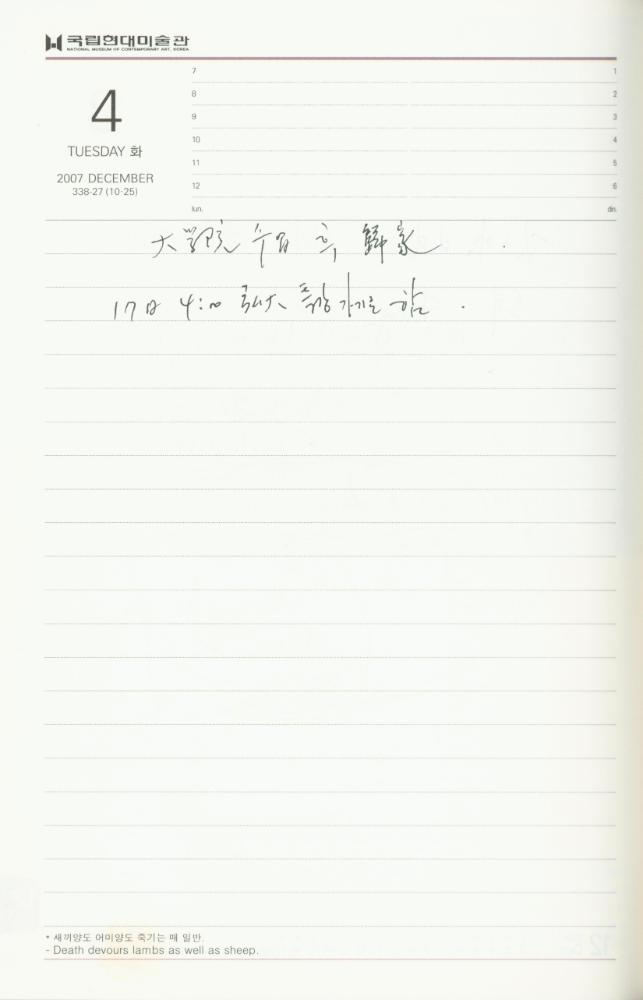 국립현대미술관
NATIONAL MUSEUM OF CONTEMPORARY ART, KOREA
4
TUESDAY 화
2007 DECEMBER
338-27 (10·25)
7 1
8 2
9 3
10 4
11 5
12 6
lun. din.
大學院 수업 후, 歸家.
17日 4:00 弘大 특강 가기로 함.
* 새끼양도 어미양도 죽기는 매 일반.
- Death devours lambs as well as sheep.